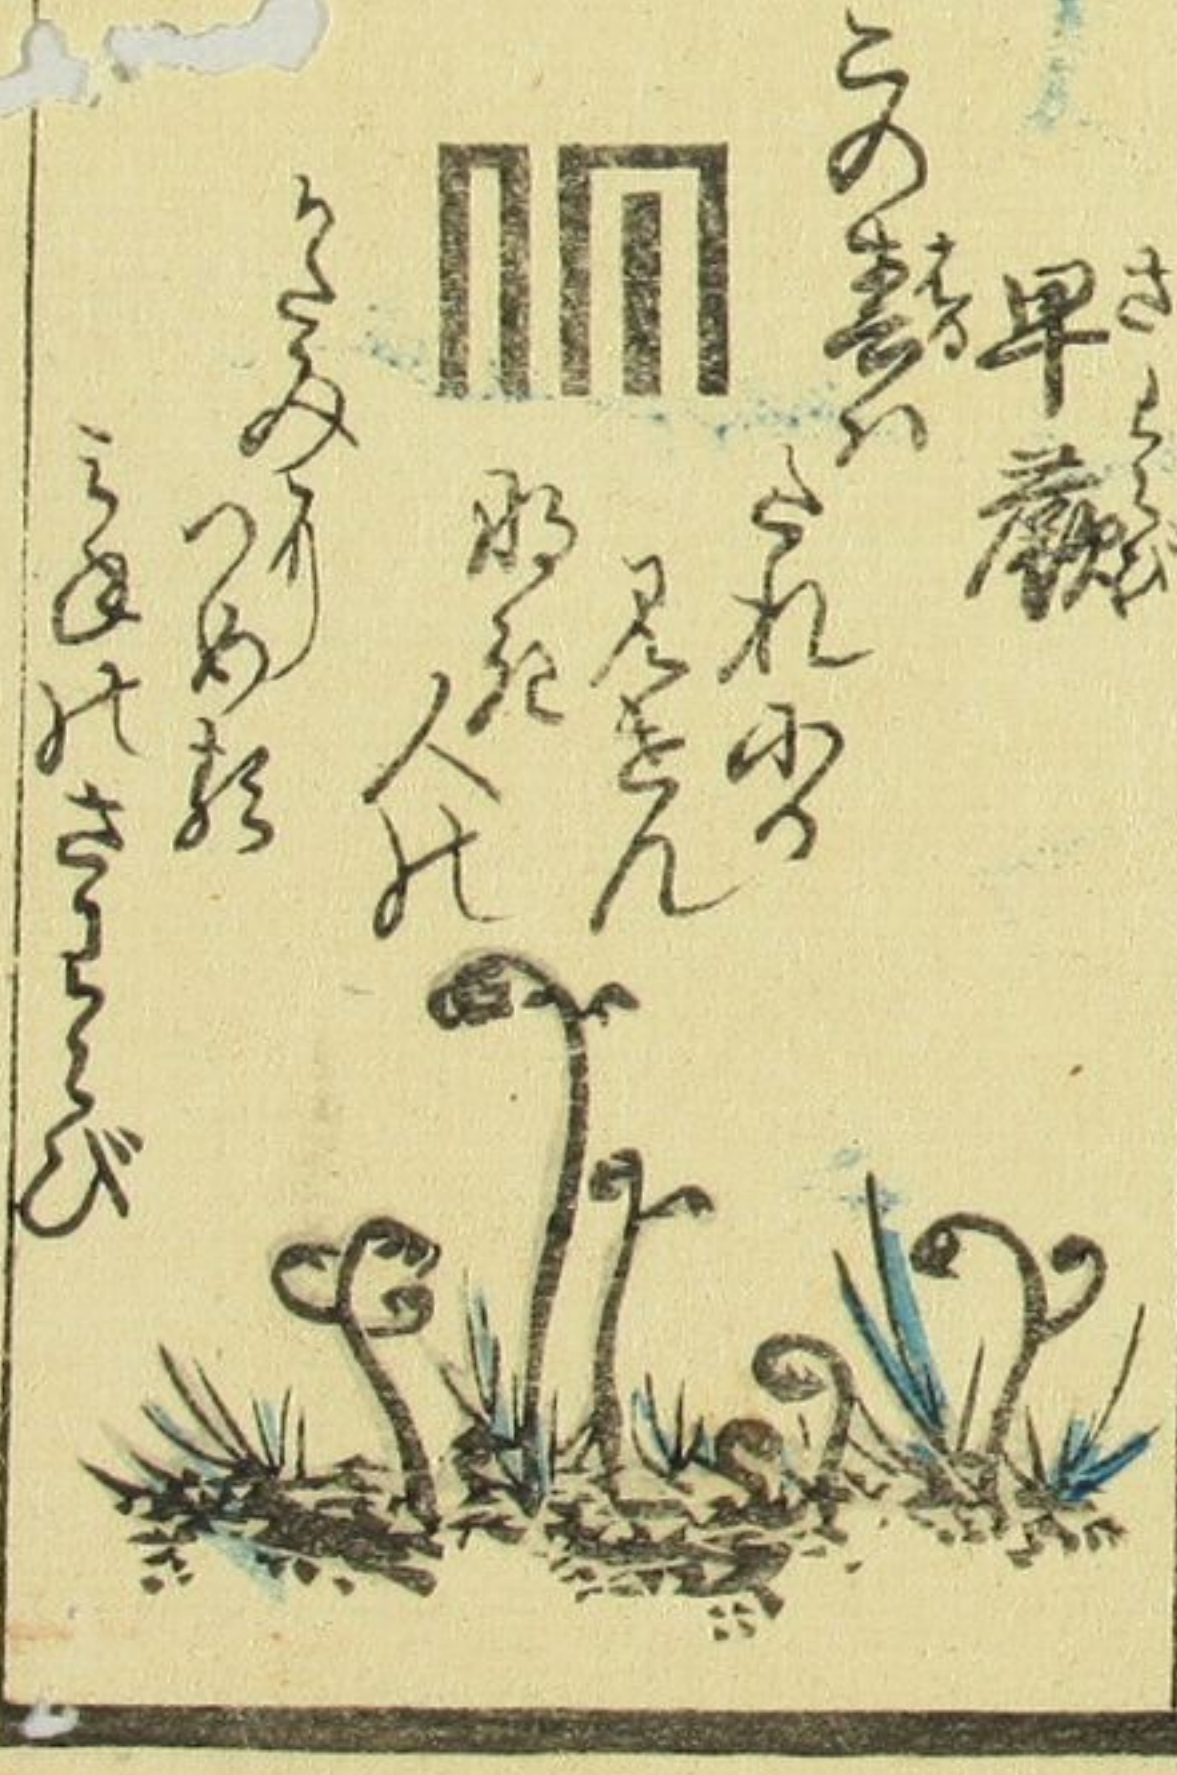 早蕨
さわらび
この春ハ
はる
たれにか
見せん
なき
人の
かたみに
つめる
みねのさわらび